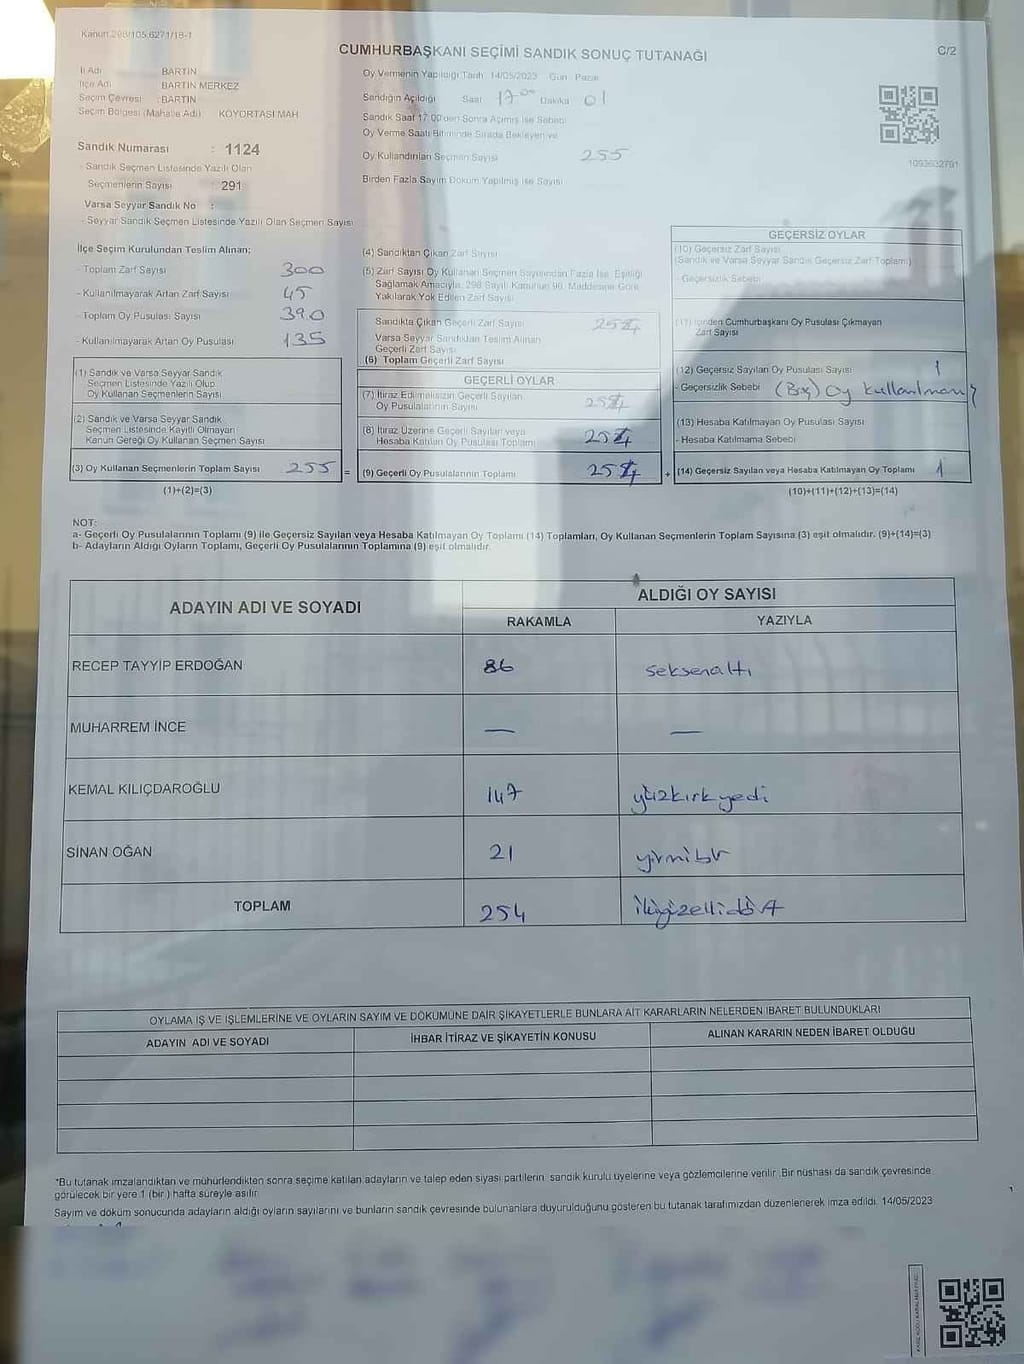 Kanun 298/105.6271/18-1
CUMHURBAŞKANI SEÇİMİ SANDIK SONUÇ TUTANAĞI
C/2
İl Adı : BARTIN
İlçe Adı : BARTIN MERKEZ
Seçim Çevresi : BARTIN
Seçim Bölgesi (Mahalle Adı) KÖYORTASI MAH
Sandık Numarası : 1124
- Sandık Seçmen Listesinde Yazılı Olan
Seçmenlerin Sayısı : 291
Varsa Seyyar Sandık No :
- Seyyar Sandık Seçmen Listesinde Yazılı Olan Seçmen Sayısı
Oy Vermenin Yapıldığı Tarih 14/05/2023 Gün Pazar
Sandığın Açıldığı Saat 17.00 Dakika 01
Sandık Saat 17:00'den Sonra Açılmış İse Sebebi
Oy Verme Saati Bitiminde Sırada Bekleyen ve
Oy Kullandırılan Seçmen Sayısı 255
Birden Fazla Sayım Döküm Yapılmış ise Sayısı
1093632791
İlçe Seçim Kurulundan Teslim Alınan:
- Toplam Zarf Sayısı 300
- Kullanılmayarak Artan Zarf Sayısı 45
- Toplam Oy Pusulası Sayısı 390
- Kullanılmayarak Artan Oy Pusulası 135
(1) Sandık ve Varsa Seyyar Sandık
Seçmen Listesinde Yazılı Olup
Oy Kullanan Seçmenlerin Sayısı
(2) Sandık ve Varsa Seyyar Sandık
Seçmen Listesinde Kayıtlı Olmayan
Kanun Gereği Oy Kullanan Seçmen Sayısı
(3) Oy Kullanan Seçmenlerin Toplam Sayısı 255 =
(1)+(2)=(3)
(4) Sandıktan Çıkan Zarf Sayısı
(5) Zarf Sayısı Oy Kullanan Seçmen Sayısından Fazla İse, Eşitliği
Sağlamak Amacıyla, 298 Sayılı Kanunun 98. Maddesine Göre
Yakılarak Yok Edilen Zarf Sayısı
Sandıkta Çıkan Geçerli Zarf Sayısı 254
Varsa Seyyar Sandıktan Teslim Alınan
Geçerli Zarf Sayısı
(6) Toplam Geçerli Zarf Sayısı
GEÇERLİ OYLAR
(7) İtiraz Edilmeksizin Geçerli Sayılan
Oy Pusulalarının Sayısı 254
(8) İtiraz Üzerine Geçerli Sayılan veya
Hesaba Katılan Oy Pusulası Toplamı 254
(9) Geçerli Oy Pusulalarının Toplamı 254 +
GEÇERSİZ OYLAR
(10) Geçersiz Zarf Sayısı
(Sandık ve Varsa Seyyar Sandık Geçersiz Zarf Toplamı)
- Geçersizlik Sebebi
(11) İçinden Cumhurbaşkanı Oy Pusulası Çıkmayan
Zarf Sayısı
(12) Geçersiz Sayılan Oy Pusulası Sayısı 1
- Geçersizlik Sebebi (Boş) Oy kullanılmamış
(13) Hesaba Katılmayan Oy Pusulası Sayısı
- Hesaba Katılmama Sebebi
(14) Geçersiz Sayılan veya Hesaba Katılmayan Oy Toplamı 1
(10)+(11)+(12)+(13)=(14)
NOT:
a- Geçerli Oy Pusulalarının Toplamı (9) ile Geçersiz Sayılan veya Hesaba Katılmayan Oy Toplamı (14) Toplamları, Oy Kullanan Seçmenlerin Toplam Sayısına (3) eşit olmalıdır. (9)+(14)=(3)
b- Adayların Aldığı Oyların Toplamı, Geçerli Oy Pusulalarının Toplamına (9) eşit olmalıdır.
ADAYIN ADI VE SOYADI
ALDIĞI OY SAYISI
RAKAMLA YAZIYLA
RECEP TAYYİP ERDOĞAN 86 seksenaltı
MUHARREM İNCE — —
KEMAL KILIÇDAROĞLU 147 yüzkırkyedi
SİNAN OĞAN 21 yirmibir
TOPLAM 254 ikiyüzellidört
OYLAMA İŞ VE İŞLEMLERİNE VE OYLARIN SAYIM VE DÖKÜMÜNE DAİR ŞİKAYETLERLE BUNLARA AİT KARARLARIN NELERDEN İBARET BULUNDUKLARI
ADAYIN ADI VE SOYADI İHBAR İTİRAZ VE ŞİKAYETİN KONUSU ALINAN KARARIN NEDEN İBARET OLDUĞU
*Bu tutanak imzalandıktan ve mühürlendikten sonra seçime katılan adayların ve talep eden siyasi partilerin sandık kurulu üyelerine veya gözlemcilerine verilir. Bir nüshası da sandık çevresinde
görülecek bir yere 1 (bir) hafta süreyle asılır.
Sayım ve döküm sonucunda adayların aldığı oyların sayılarını ve bunların sandık çevresinde bulunanlara duyurulduğunu gösteren bu tutanak tarafımızdan düzenlenerek imza edildi. 14/05/2023